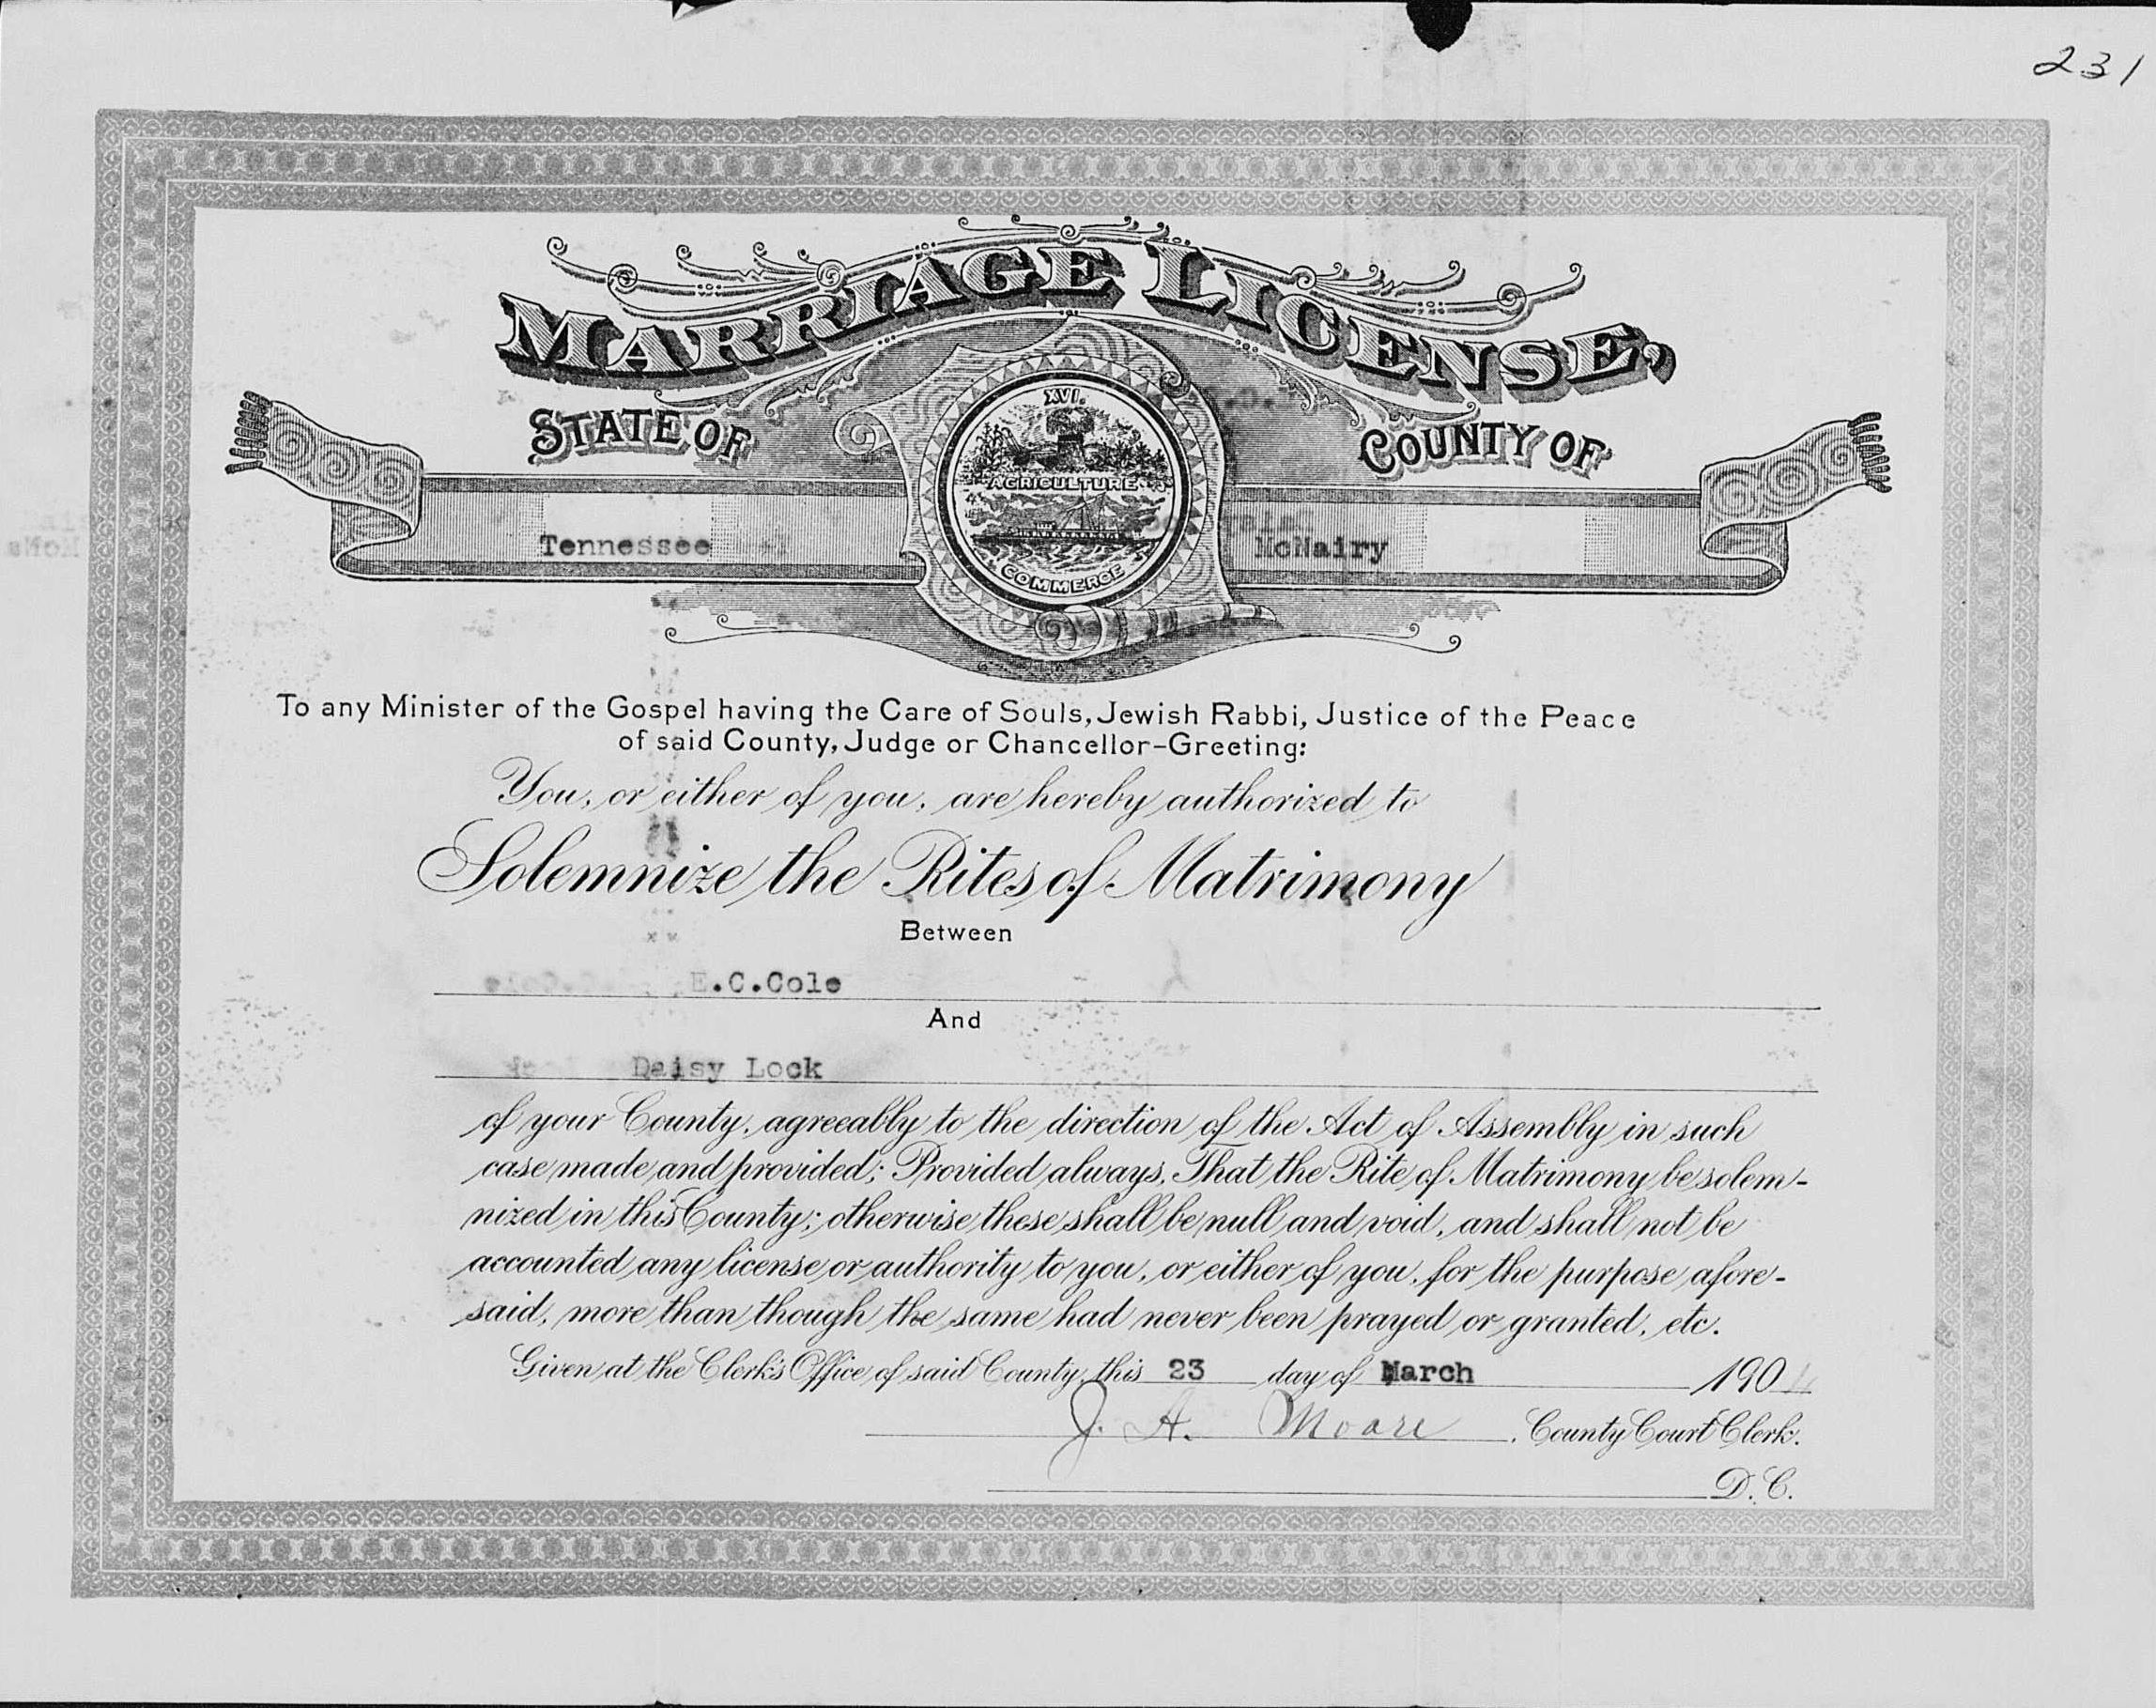 231
MARRIAGE LICENSE,
STATE OF
COUNTY OF
XVI.
AGRICULTURE
COMMERCE
Tennessee
McNairy
To any Minister of the Gospel having the Care of Souls, Jewish Rabbi, Justice of the Peace
of said County, Judge or Chancellor-Greeting:
You, or either of you, are hereby authorized to
Solemnize the Rites of Matrimony
Between
E.C.Cole
And
Daisy Lock
of your County, agreeably to the direction of the Act of Assembly in such
case made and provided; Provided always, That the Rite of Matrimony be solem-
nized in this County; otherwise these shall be null and void, and shall not be
accounted any license or authority to you, or either of you, for the purpose afore-
said, more than though the same had never been prayed or granted, etc.
Given at the Clerk's Office of said County, this 23 day of March 190
J. A. Moore, County Court Clerk.
D. C.